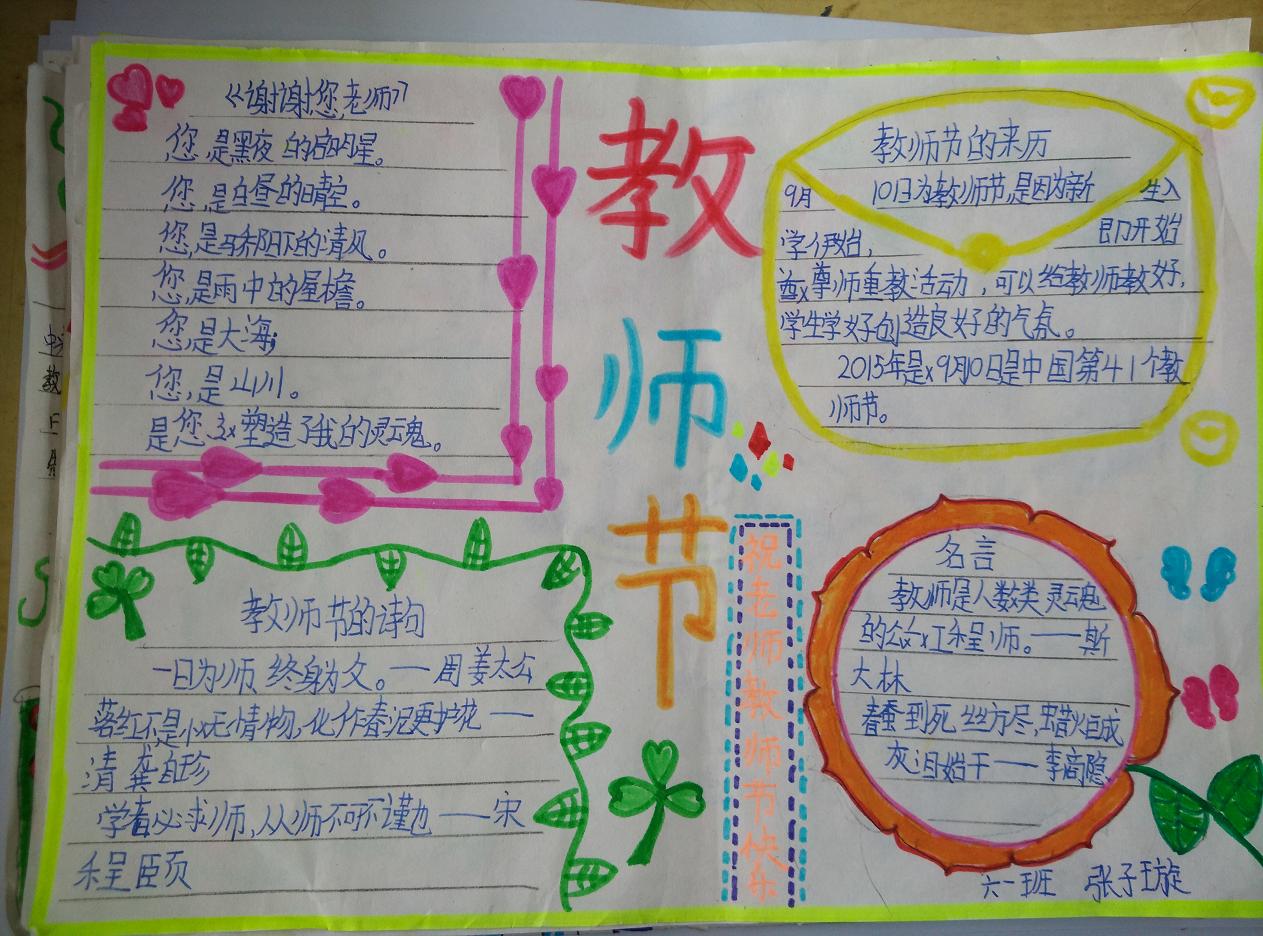 《谢谢您,老师》
您,是黑夜的启明星。
您,是白昼的晴空。
您,是骄阳下的清风。
您,是雨中的屋檐。
您,是大海;
您,是山川。
是您,塑造了我的灵魂。
教师节
教师节的来历
9月10日为教师节,是因为新生入
学伊始,即开始
尊师重教活动,可以给教师教好,
学生学好创造良好的气氛。
2015年是9月10日是中国第41个教
师节。
教师节的诗句
一日为师、终身为父。——周姜太公
落红不是无情物,化作春泥更护花——
清 龚自珍
学者必求师,从师不可不谨也——宋
程臣页
祝老师教师节快乐
名言
教师是人类灵魂
的工程师。——斯
大林
春蚕到死丝方尽,蜡火巨成
灰泪始干——李商隐
六一班 张子璇